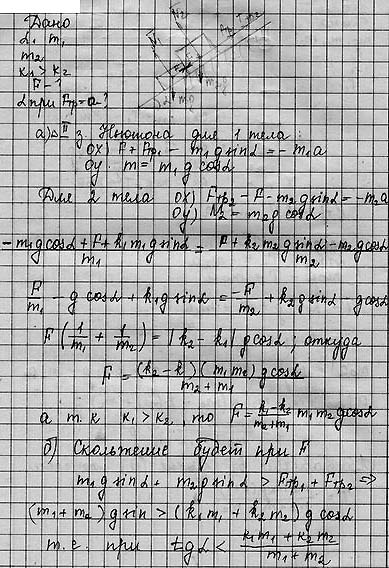 Дано
α, m₁
m₂
k₁ > k₂
F - ?
α при Aтр = a - ?
а) II з. Ньютона для 1 тела:
OX) F + Aтр₁ - m₁g sinα = -m₁a
OY) m = m₁g cosα
Для 2 тела OX) Fтр₂ - F - m₂g sinα = -m₂a
OY) N₂ = m₂g cosα
(-m₁g cosα + F + k₁m₁g sinα)/m₁ = (F + k₂m₂g sinα - m₂g cosα)/m₂
F/m₁ - g cosα + k₁g sinα = -F/m₂ + k₂g sinα - g cosα
F(1/m₁ + 1/m₂) = |k₂ - k₁| g cosα; откуда
F = (k₂ - k)(m₁m₂) g cosα/(m₂ + m₁)
а т.к k₁ > k₂, то F = (k₁ - k₂)/(m₂ + m₁) m₁m₂g cosα
б) Скольжение будет при F
m₁g sinα + m₂g sinα > Fтр₁ + Fтр₂ ⇒
(m₁ + m₂) g sin > (k₁m₁ + k₂m₂) g cosα
т.е. при tgα < (k₁m₁ + k₂m₂)/(m₁ + m₂)